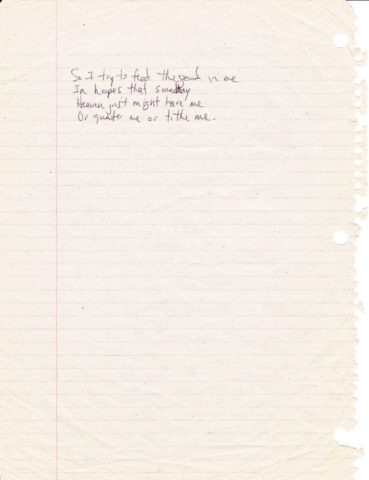 So I try to feed the good in me
In hopes that someday
Heaven just might have me
Or quarter me or tithe me.